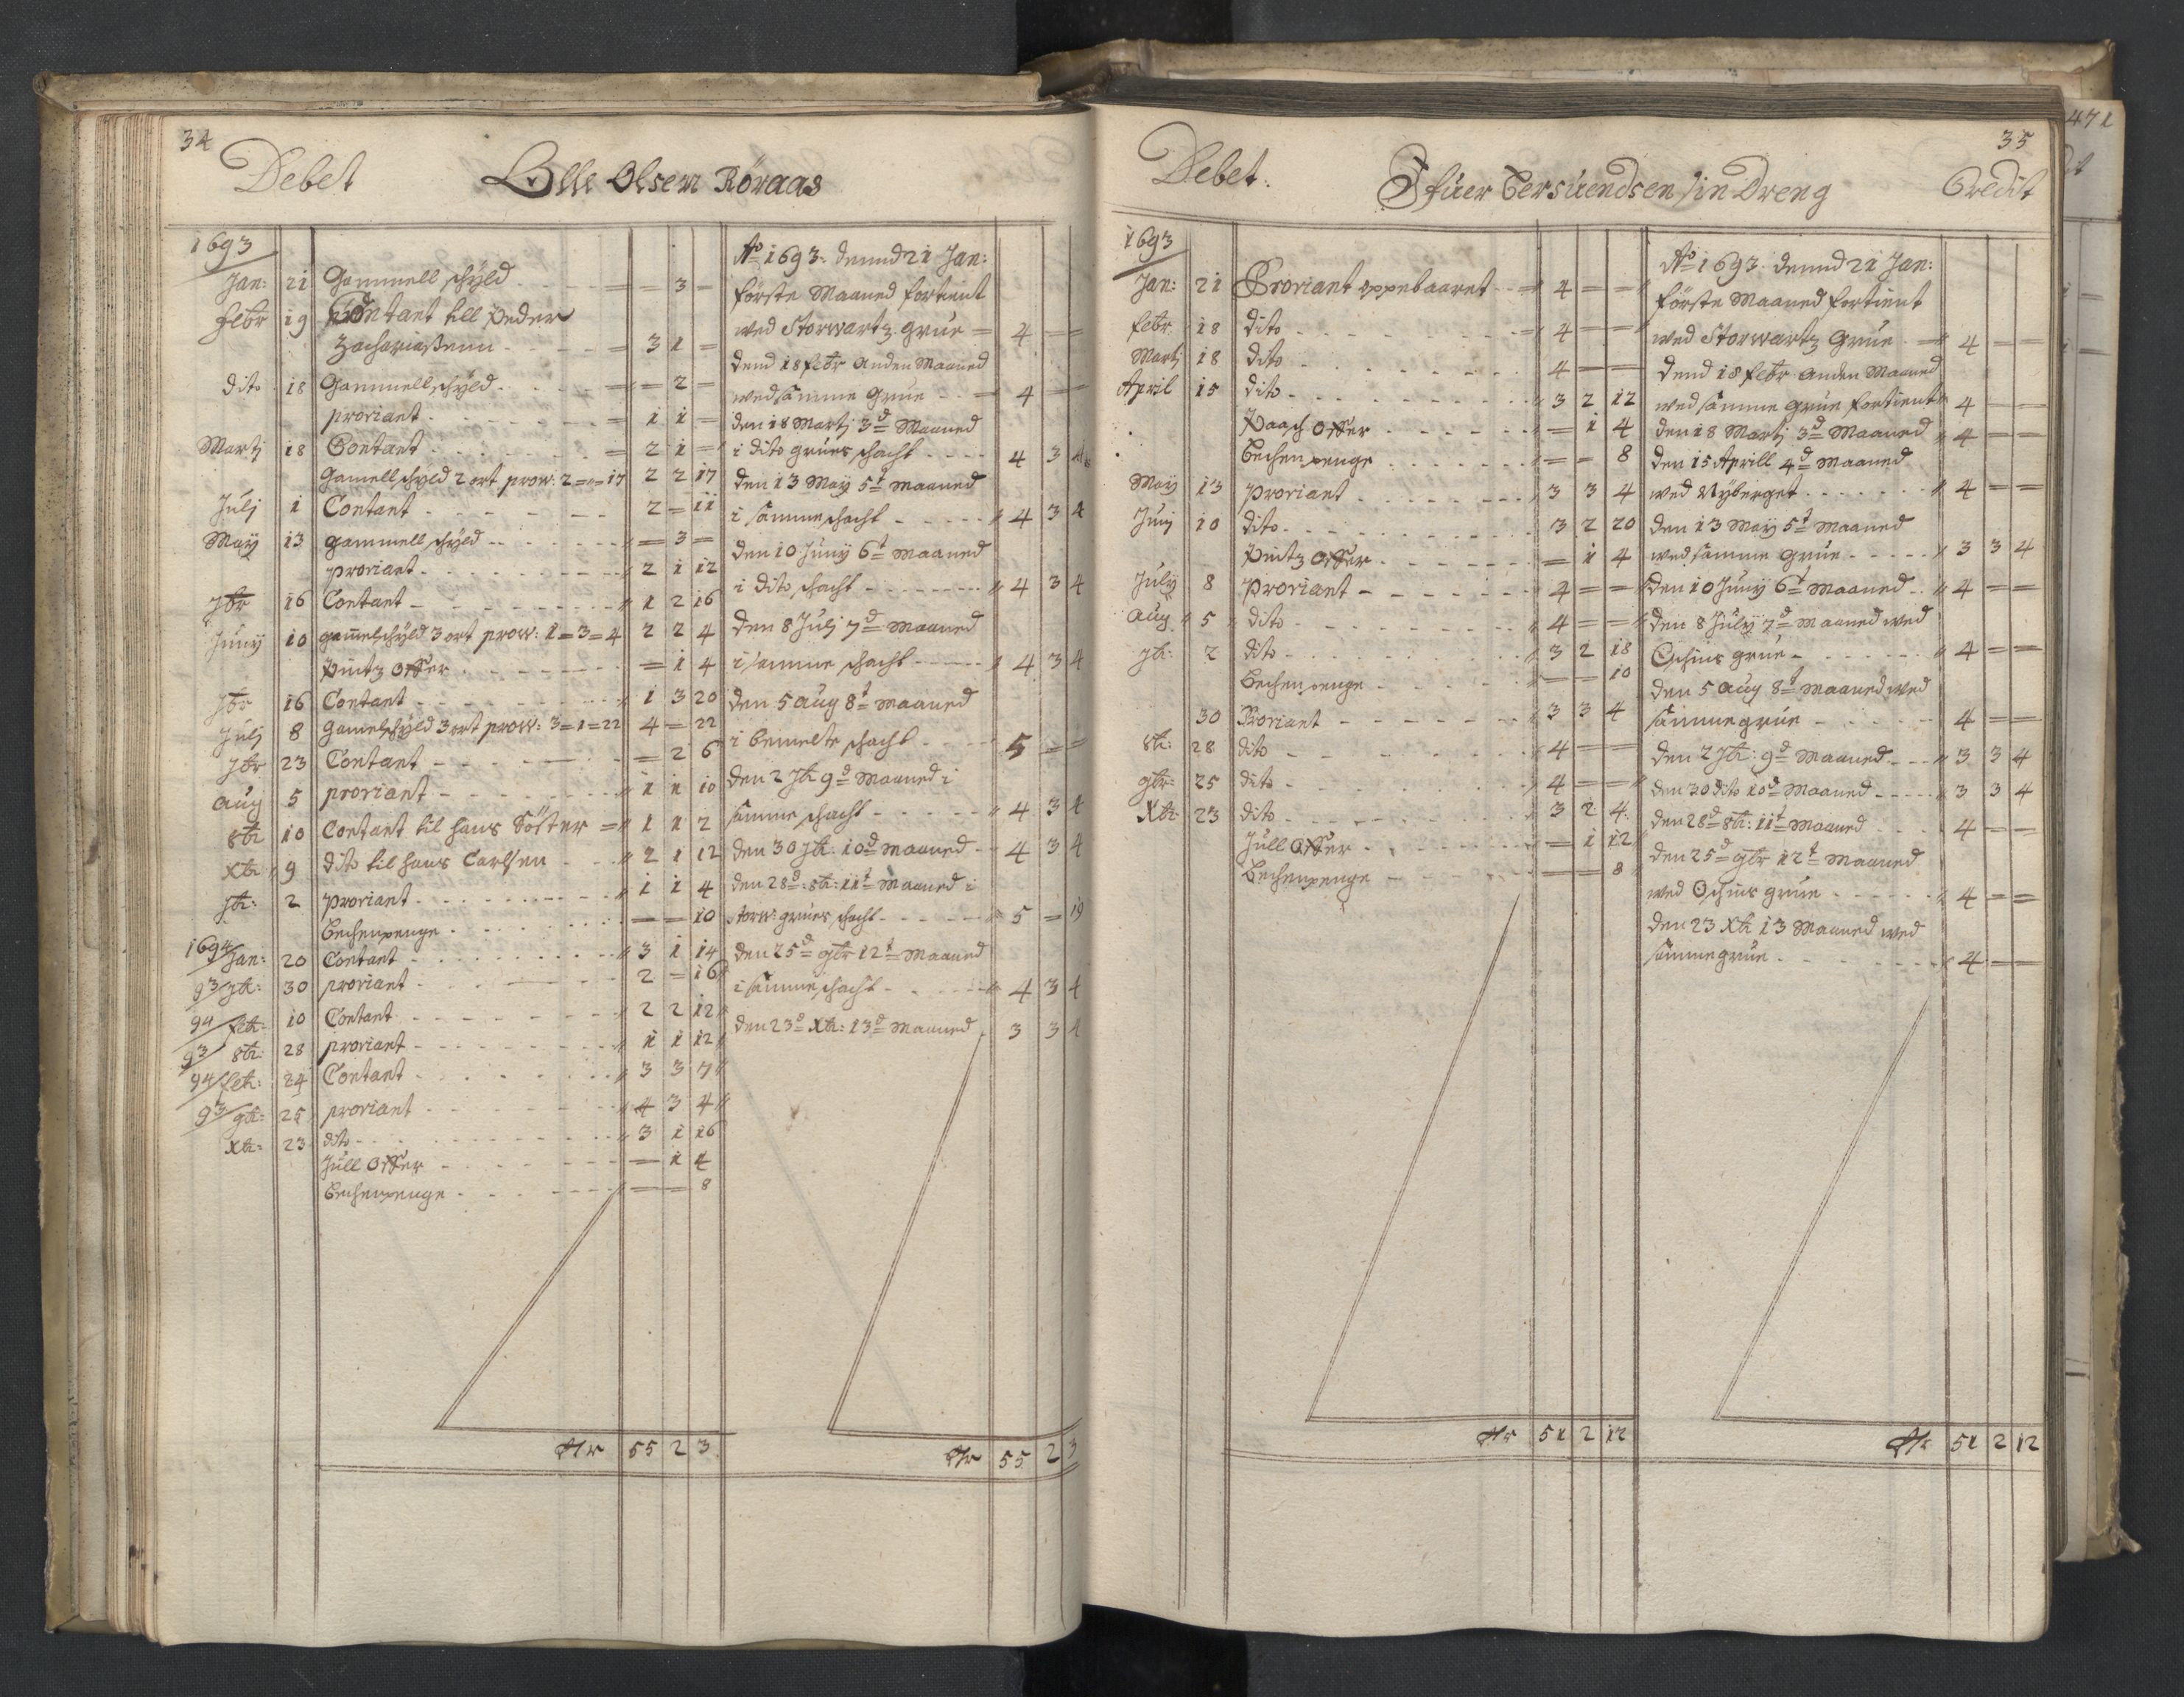 34
Debet Olle Olsen Röraas
1693
Jan: 21 Gammell schyld - - - = = 3 =
Febr 19 Contant till Peder
Zachariaßenn - - - = 3 1 =
dito 18 Gammell schyld - - - = = 2 =
proviant - - - = 1 1 =
Martj 18 Contant - - - = 2 1 =
Gamell schyld 2 ort prow: 2 = = 17 2 2 17
Julj 1 Contant - - - 2 = 11
Maÿ 13 gammell schyld - - - = 3 =
proviant - - - 2 1 12
7br 16 Contant - - - 1 2 16
Junÿ 10 gam̄elschyld 3 ort prow: 1 = 3 = 4 2 2 4
Pintz Offer - - - = 1 4
7br 16 Contant - - - 1 3 20
Julj 8 Gamelschyld 3 ort prow: 3 = 1 = 22 4 = 22
7br 23 Contant - - - = 2 6
Aug 5 proviant - - - 1 1 10
8br 10 Contant til hans Söster = 1 1 2
Xbr 9 dito til hans Carlsen - - 2 1 12
7br: 2 proviant - - - 1 1 4
Bechenpenge - - - = = 10
1694/Jan: 20 Contant - - - 3 1 14
93/7br: 30 proviant - - - 2 = 16
94/febr: 10 Contant - - - 2 2 12
93/8br: 28 proviant - - - 1 1 12
94/febr: 24 Contant - - - 3 3 7
93/9br: 25 proviant - - - 4 3 4
Xbr: 23 dito - - - 3 1 16
Jull Offer - - - = 1 4
Bechenpenge - - - = = 8
55 2 3
Ao 1693. dennd 21 Jan:
förste Maaned fortient
wed Storwartz grue = 4 = =
dend 18 febr anden Maaned
wed samme Grue - - 4 = =
den 18 Martj 3d Maaned
i dito grues schacht - - - 4 3 4
den 13 Maÿ 5t Maaned
i samme schacht - - - 4 3 4
den 10 Junÿ 6t Maaned
i dito schacht - - - 4 3 4
den 8 Julj 7d Maaned
i samme schacht - - - 4 3 4
den 5 aug 8t Maaned
i bemelte schacht - - - 5 = =
den 2 7br 9d Maaned i
samme schacht - - - 4 3 4
den 30 7br: 10d Maaned - - 4 3 4
den 28d: 8br: 11t Maaned i
storw: grues schacht - - - 5 = 19
den 25d 9br 12t Maaned
i samme schacht - - - 4 3 4
den 23d Xbr: 13d Maaned 3 3 4
55 2 3
35
Debet. Ifuer Bersuendsen sin Dreng Credit
1693
Jan: 21 Proviant oppebaaret - - 4 = =
febr 18 dito - - - 4 = =
Martj 18 dito - - - 4 = =
April 15 dito - - - 3 2 12
Paasch Offer - - - = 1 4
Bechenpenge - - - = = 8
Maÿ 13 proviant - - - 3 3 4
Junj 10 dito - - - 3 2 20
Pintz Offer - - - = 1 4
Julÿ 8 proviant - - - 4 = =
Aug 5 dito - - - 4 = =
7br: 2 dito - - - 3 2 18
Bechenpenge - - - = = 10
30 Proviant - - - 3 3 4
8br: 28 dito - - - 4 = =
9br: 25 dito - - - 4 = =
Xbr: 23 dito - - - 3 2 4
Jull Offer - - - = 1 12
Bechenpenge - - - = = 8
51 2 12
Ao 1693 dennd 21 Jan:
förste Maaned fortient
wed Storwartz Grue - = 4 = =
dend 18 febr anden Maaned
wed samme grue fortient 4 = =
den 18 Martj 3d Maaned 4 = =
den 15 Aprill 4d Maaned
wed Nÿberget - - - 4 = =
den 13 Maÿ 5t Maaned
wed samme grue - - - 3 3 4
den 10 Junÿ 6t Maaned - 4 = =
den 8 Julÿ 7d Maaned wed
grue - - - 4 = =
den 5 aug 8t Maaned wed
samme grue - - - 4 = =
den 2 7br: 9d Maaned - - 3 3 4
den 30 dito 10d Maaned - - 3 3 4
den 28d 8br: 11t Maaned - - 4 = =
den 25d 9br 12t Maaned
wed grue - - - 4 = =
den 23 Xbr 13 Maaned wed
samme grue - - - 4 = =
51 2 12
471